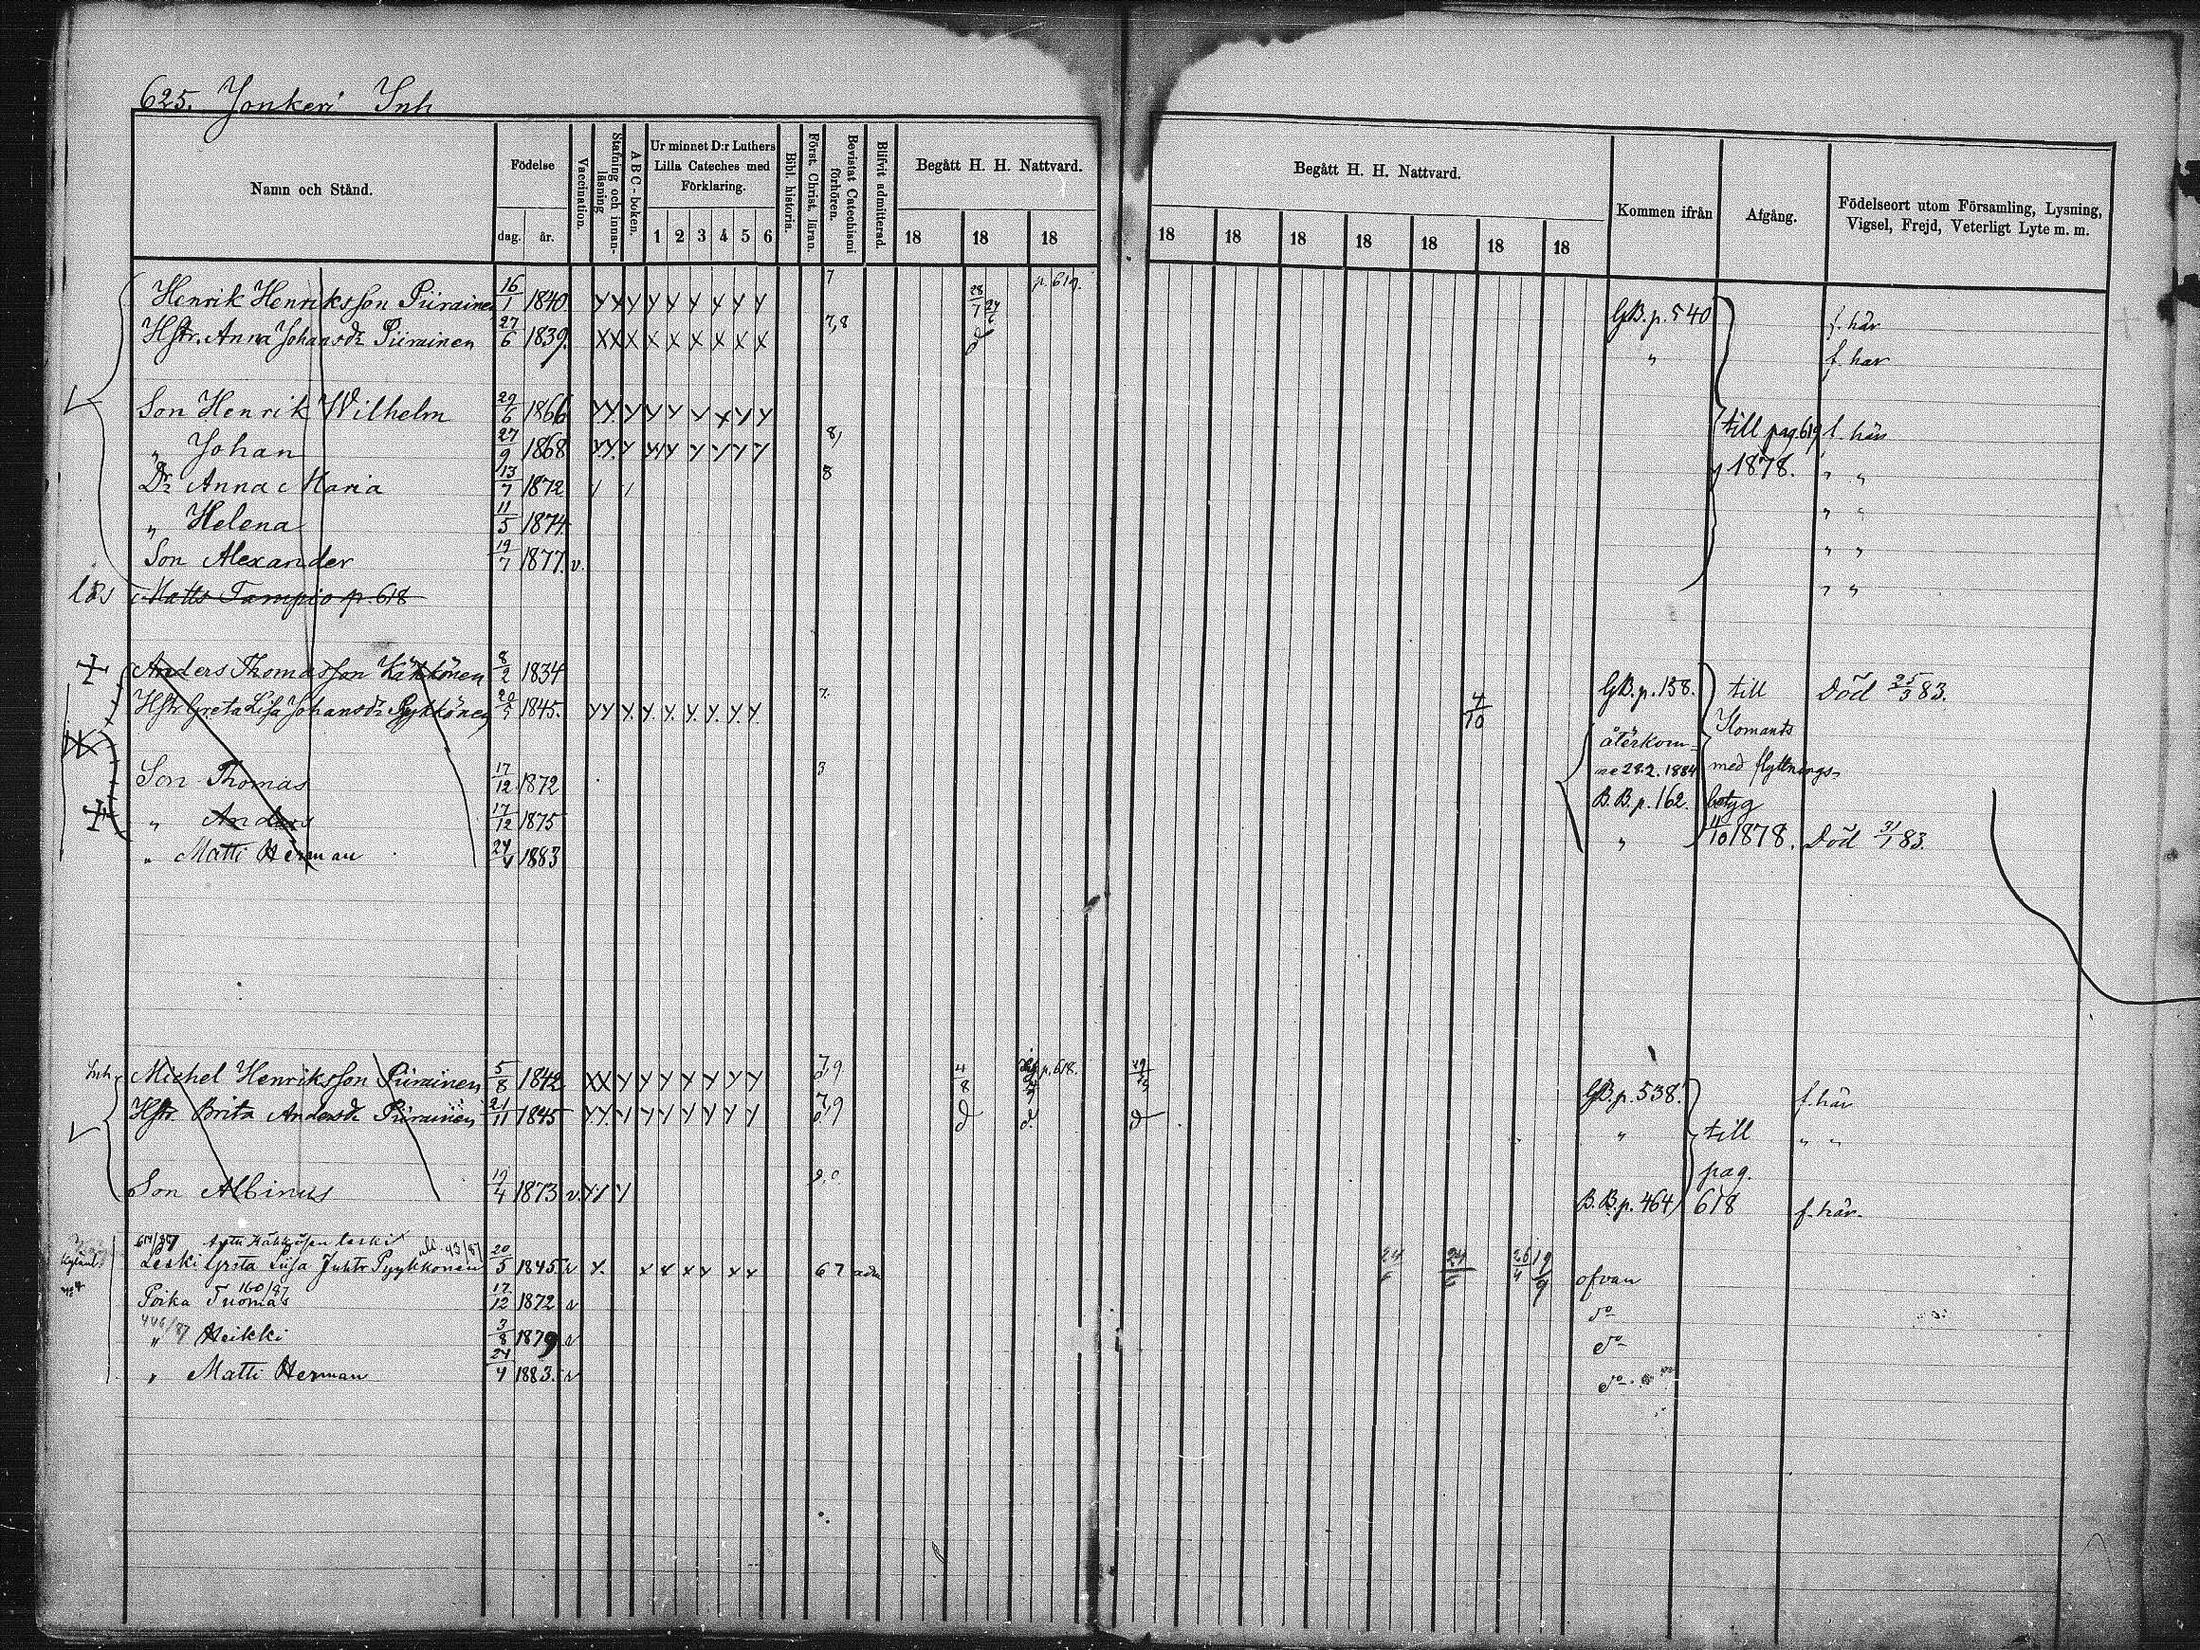 625. Jonkeri Inh
Namn och Stånd. Födelse dag. år. Vaccination. Stafning och innanläsning ABC-boken. Ur minnet D:r Luthers Lilla Cateches med Förklaring. 1 2 3 4 5 6 Bibl. historia. Först. Christ. läran. Bevistat Catechismi förhören. Blifvit admitterad. Begått H. H. Nattvard. 18 18 18 Begått H. H. Nattvard. 18 18 18 18 18 18 18 Kommen ifrån Afgång. Födelseort utom Församling, Lysning, Vigsel, Frejd, Veterligt Lyte m. m.
Henrik Henriksson Piirainen 16/1 1840. 7 p. 619. GB. p. 540 f. här
Hstr. Anna Johansdr Piirainen 27/6 1839. 7,8 d " f. här
Son Henrik Wilhelm 29/6 1866 till pag 619 f. här
" Johan 27/9 1868 8, 1878. " "
Dr Anna Maria 13/7 1872 8 " "
" Helena 11/5 1874 " "
Son Alexander 19/7 1877. v. " "
lös Matts Tampio p. 618
Anders Thomasson Käkkönen 8/2 1834 GB. p. 138. till Död 25/3 83.
Hstr Greta Lisa Johansdr Pykkönen 20/5 1845. 7. 4/10 Ilomants
återkomne 28.2. 1884 med flyttnings-
Son Thomas 17/12 1872 3 B.B. p. 162. betyg
" Anders 17/12 1875 " 11/10 1878. Död 31/1 83.
" Matti Herman 24/4 1883
Inh. Michel Henriksson Piirainen 5/8 1842 7,9 4/8 p. 618. GB. p. 538. f. här
Hstr. Brita Andersdr Piirainen 21/11 1845 7,9 d d. d " till " "
pag.
Son Albinus 19/4 1873 v. B.B. p. 464 618 f. här.
Antti Käkkösen leski
Leski Greta Liisa Juhtr Pyykkönen 20/5 1845. v 6 7 adm 24/6 26/4 19/9 ofvan
160/87
Poika Tuomas 17/12 1872 v do
446/87 " Heikki 3/8 1879 v do
" Matti Herman 24/4 1883. v do